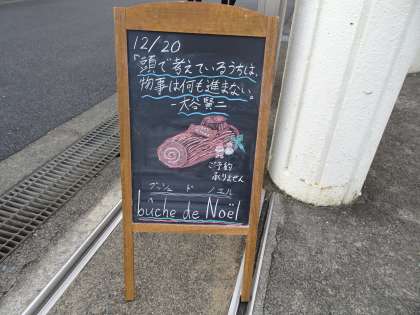 12/20
「頭で考えているうちは、
物事は何も進まない。
-大谷賢二
ご予約
承りません
ブッシュ ド ノエル
bûche de Noël